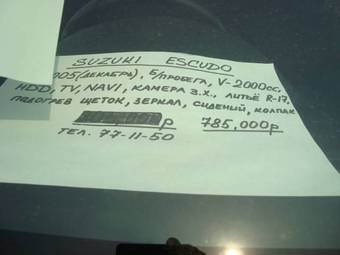 SUZUKI ESCUDO
005 (ДЕКАБРЬ), Б/ПРОБЕГА, V-2000сс,
HDD, TV, NAVI, КАМЕРА З.Х., ЛИТЬЁ R-17,
ПОДОГРЕВ ЩЕТОК, ЗЕРКАЛ, СИДЕНИЙ, КОЛПАК
р 785,000р
ТЕЛ. 77-11-50